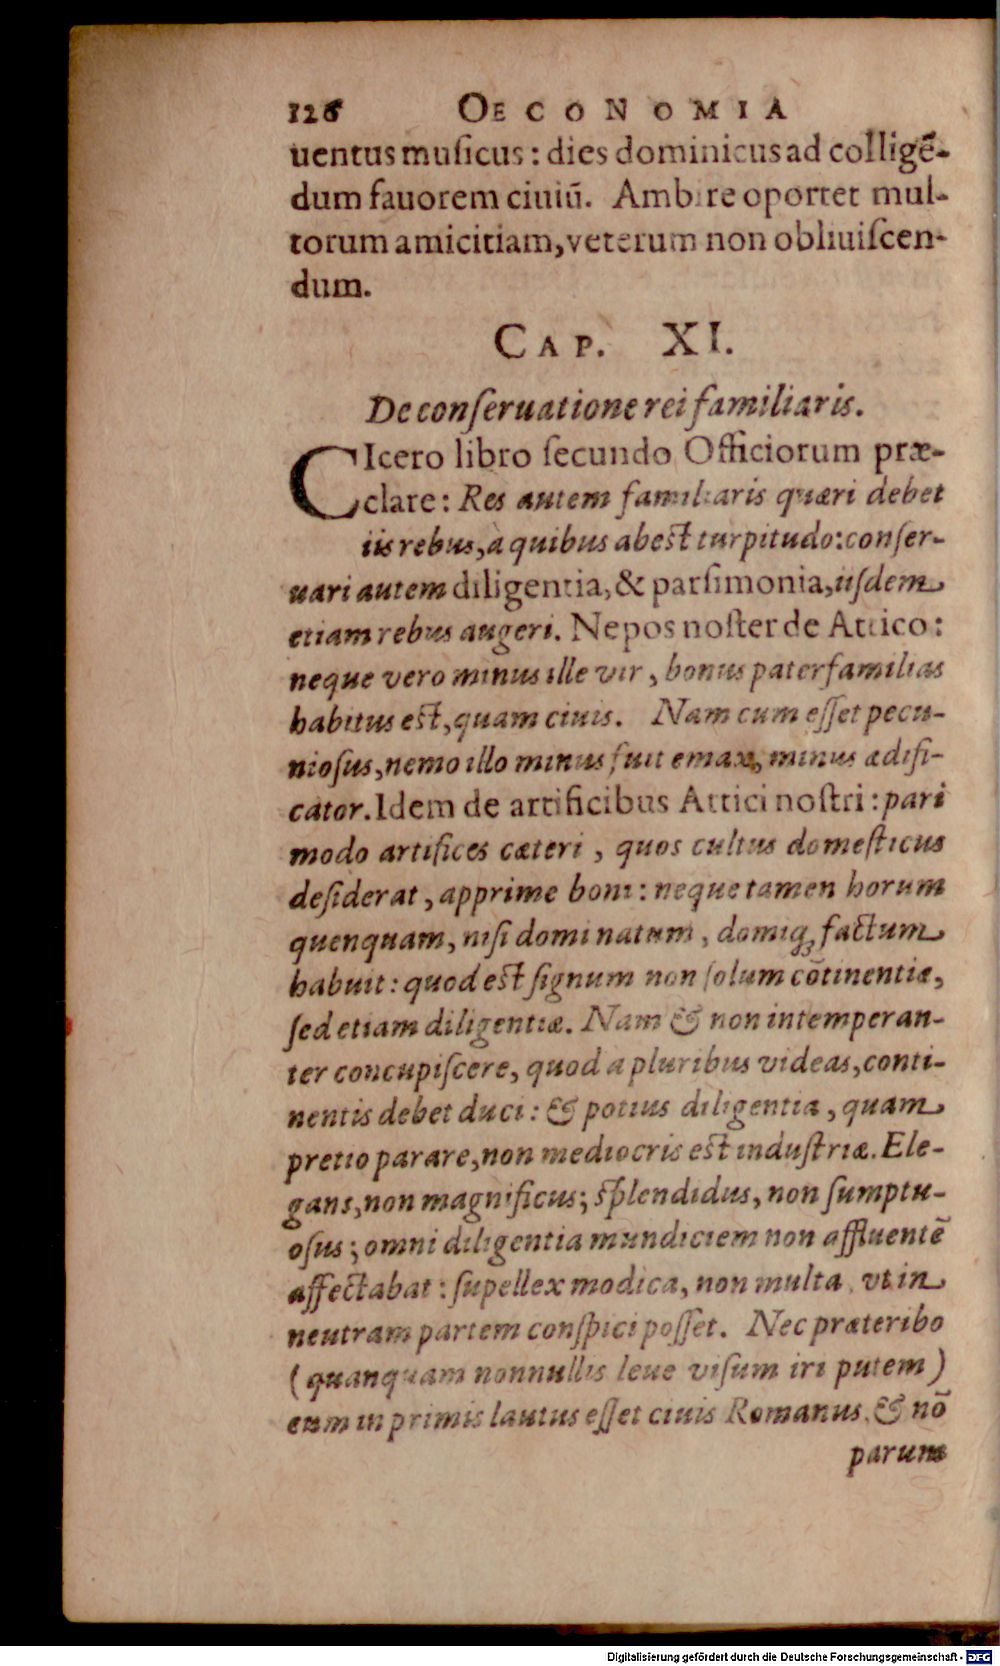 126 OECONOMIA
uentus musicus: dies dominicus ad colligẽ-
dum fauorem ciuiũ. Ambire oportet mul-
torum amicitiam, veterum non obliuiſcen-
dum.
CAP. XI.
De conſeruatione rei familiaris.
CIcero libro ſecundo Officiorum præ-
clare: Res autem familiaris quæri debet
iis rebus, à quibus abest turpitudo: conſer-
uari autem diligentia, & parſimonia, iiſdem
etiam rebus augeri. Nepos noſter de Attico:
neque vero minus ille vir, bonus paterfamilias
habitus est, quam ciuis. Nam cum eſſet pecu-
nioſus, nemo illo minus fuit emax, minus ædifi-
cator. Idem de artificibus Attici noſtri: pari
modo artifices cæteri, quos cultus domeſticus
deſiderat, apprime boni: neque tamen horum
quenquam, niſi domi natum, domiq; factum
habuit: quod est ſignum non ſolum cõtinentiæ,
ſed etiam diligentiæ. Nam & non intemperan-
ter concupiſcere, quod a pluribus videas, conti-
nentis debet duci: & potius diligentia, quam
pretio parare, non mediocris est induſtriæ. Ele-
gans, non magnificus; ſplendidus, non ſumptu-
oſus; omni diligentia mundiciem non affluentẽ
affectabat: ſupellex modica, non multa, vt in
neutram partem conſpici poſſet. Nec præteribo
(quanquam nonnullis leue viſum iri putem)
eum in primis lautus eſſet ciuis Romanus, & nõ
parum
Digitalisierung gefördert durch die Deutsche Forschungsgemeinschaft - DFG